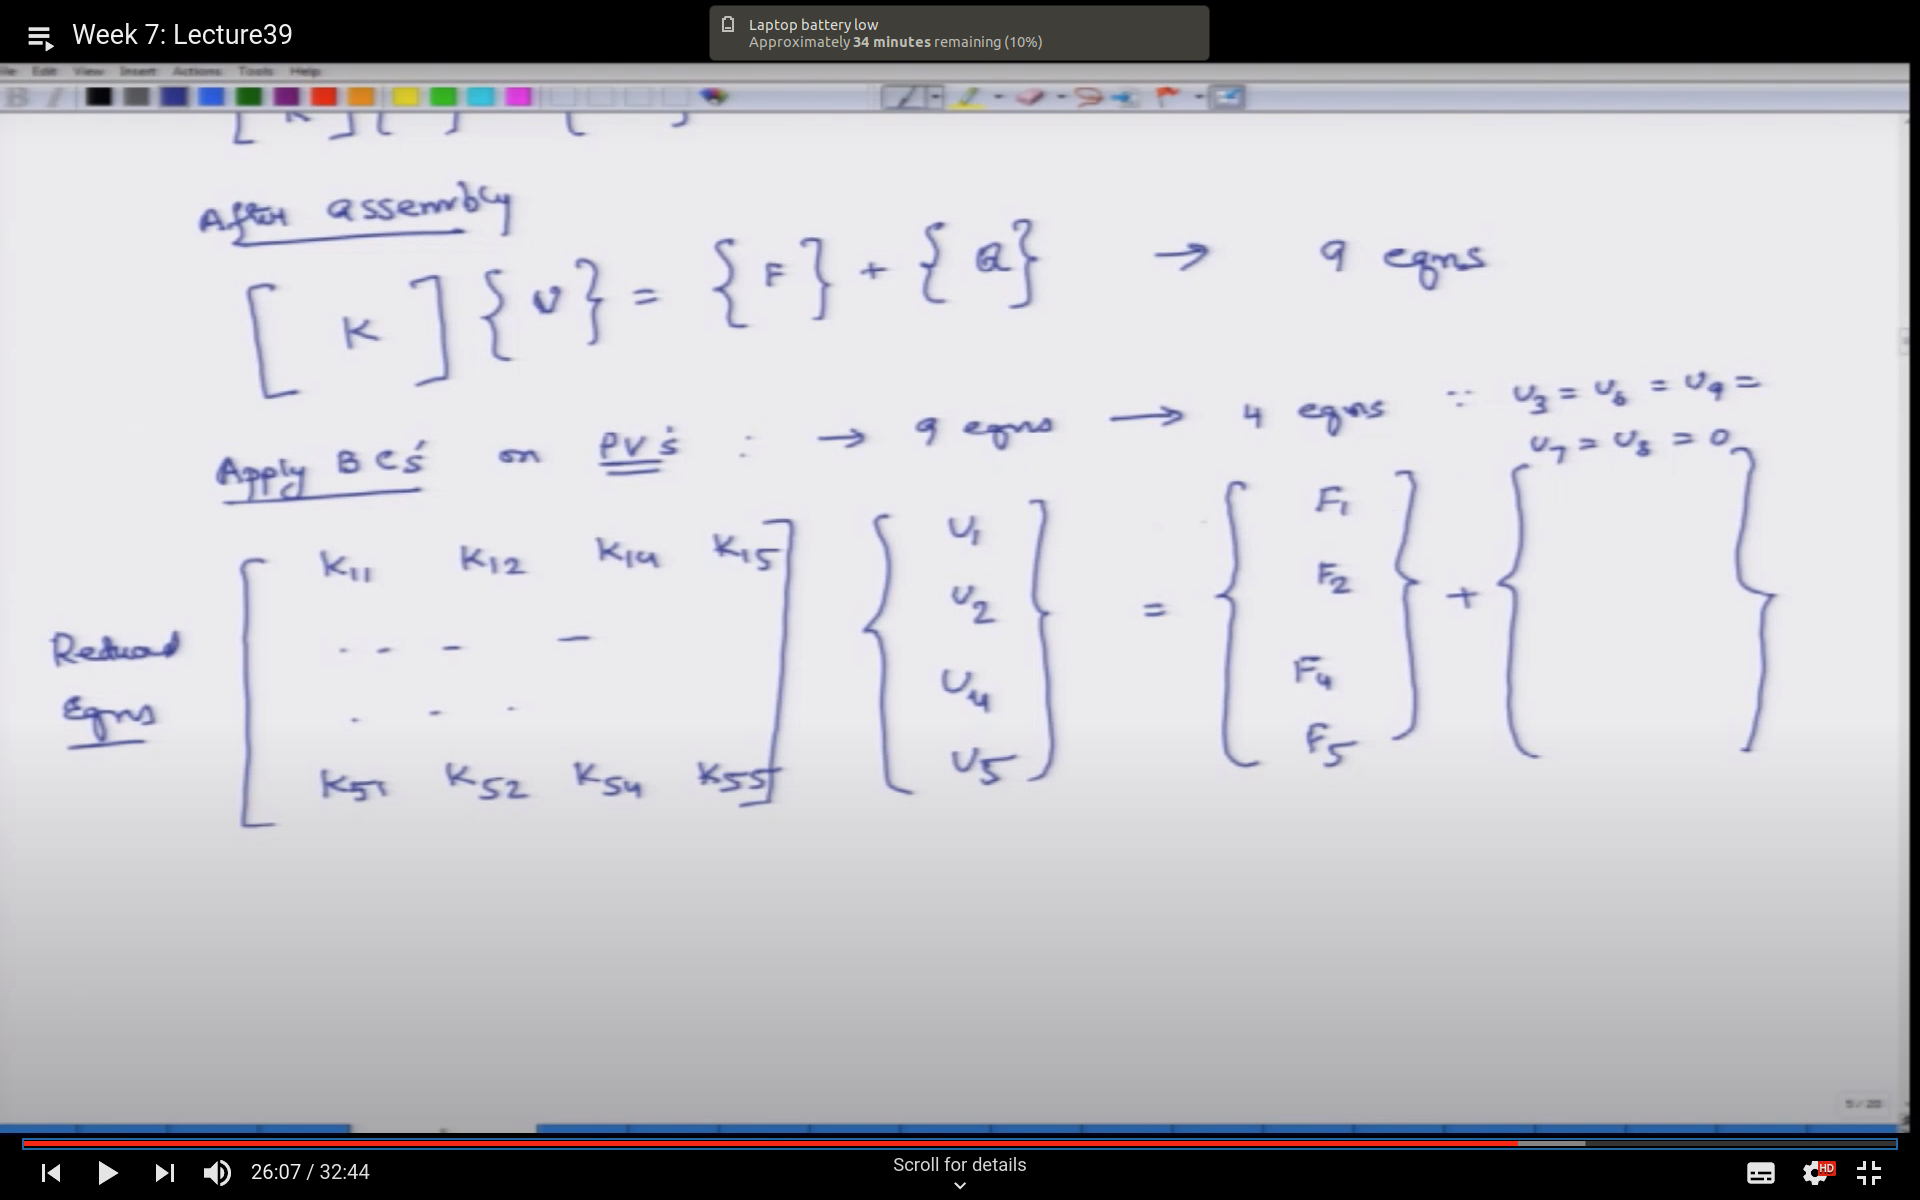 Week 7: Lecture39
Laptop battery low
Approximately 34 minutes remaining (10%)
File Edit View Insert Actions Tools Help
B I
[ K ] { } { }
After assembly
[ K ] { U } = { F } + { Q } → 9 eqns
Apply BC's on PV's : → 9 eqns → 4 eqns ∵ U3 = U6 = U9 =
U7 = U8 = 0
K11 K12 K14 K15 U1 F1
U2 = F2 +
Reduced
Eqns
U4 F4
K51 K52 K54 K55 U5 F5
5 / 20
26:07 / 32:44
Scroll for details
HD